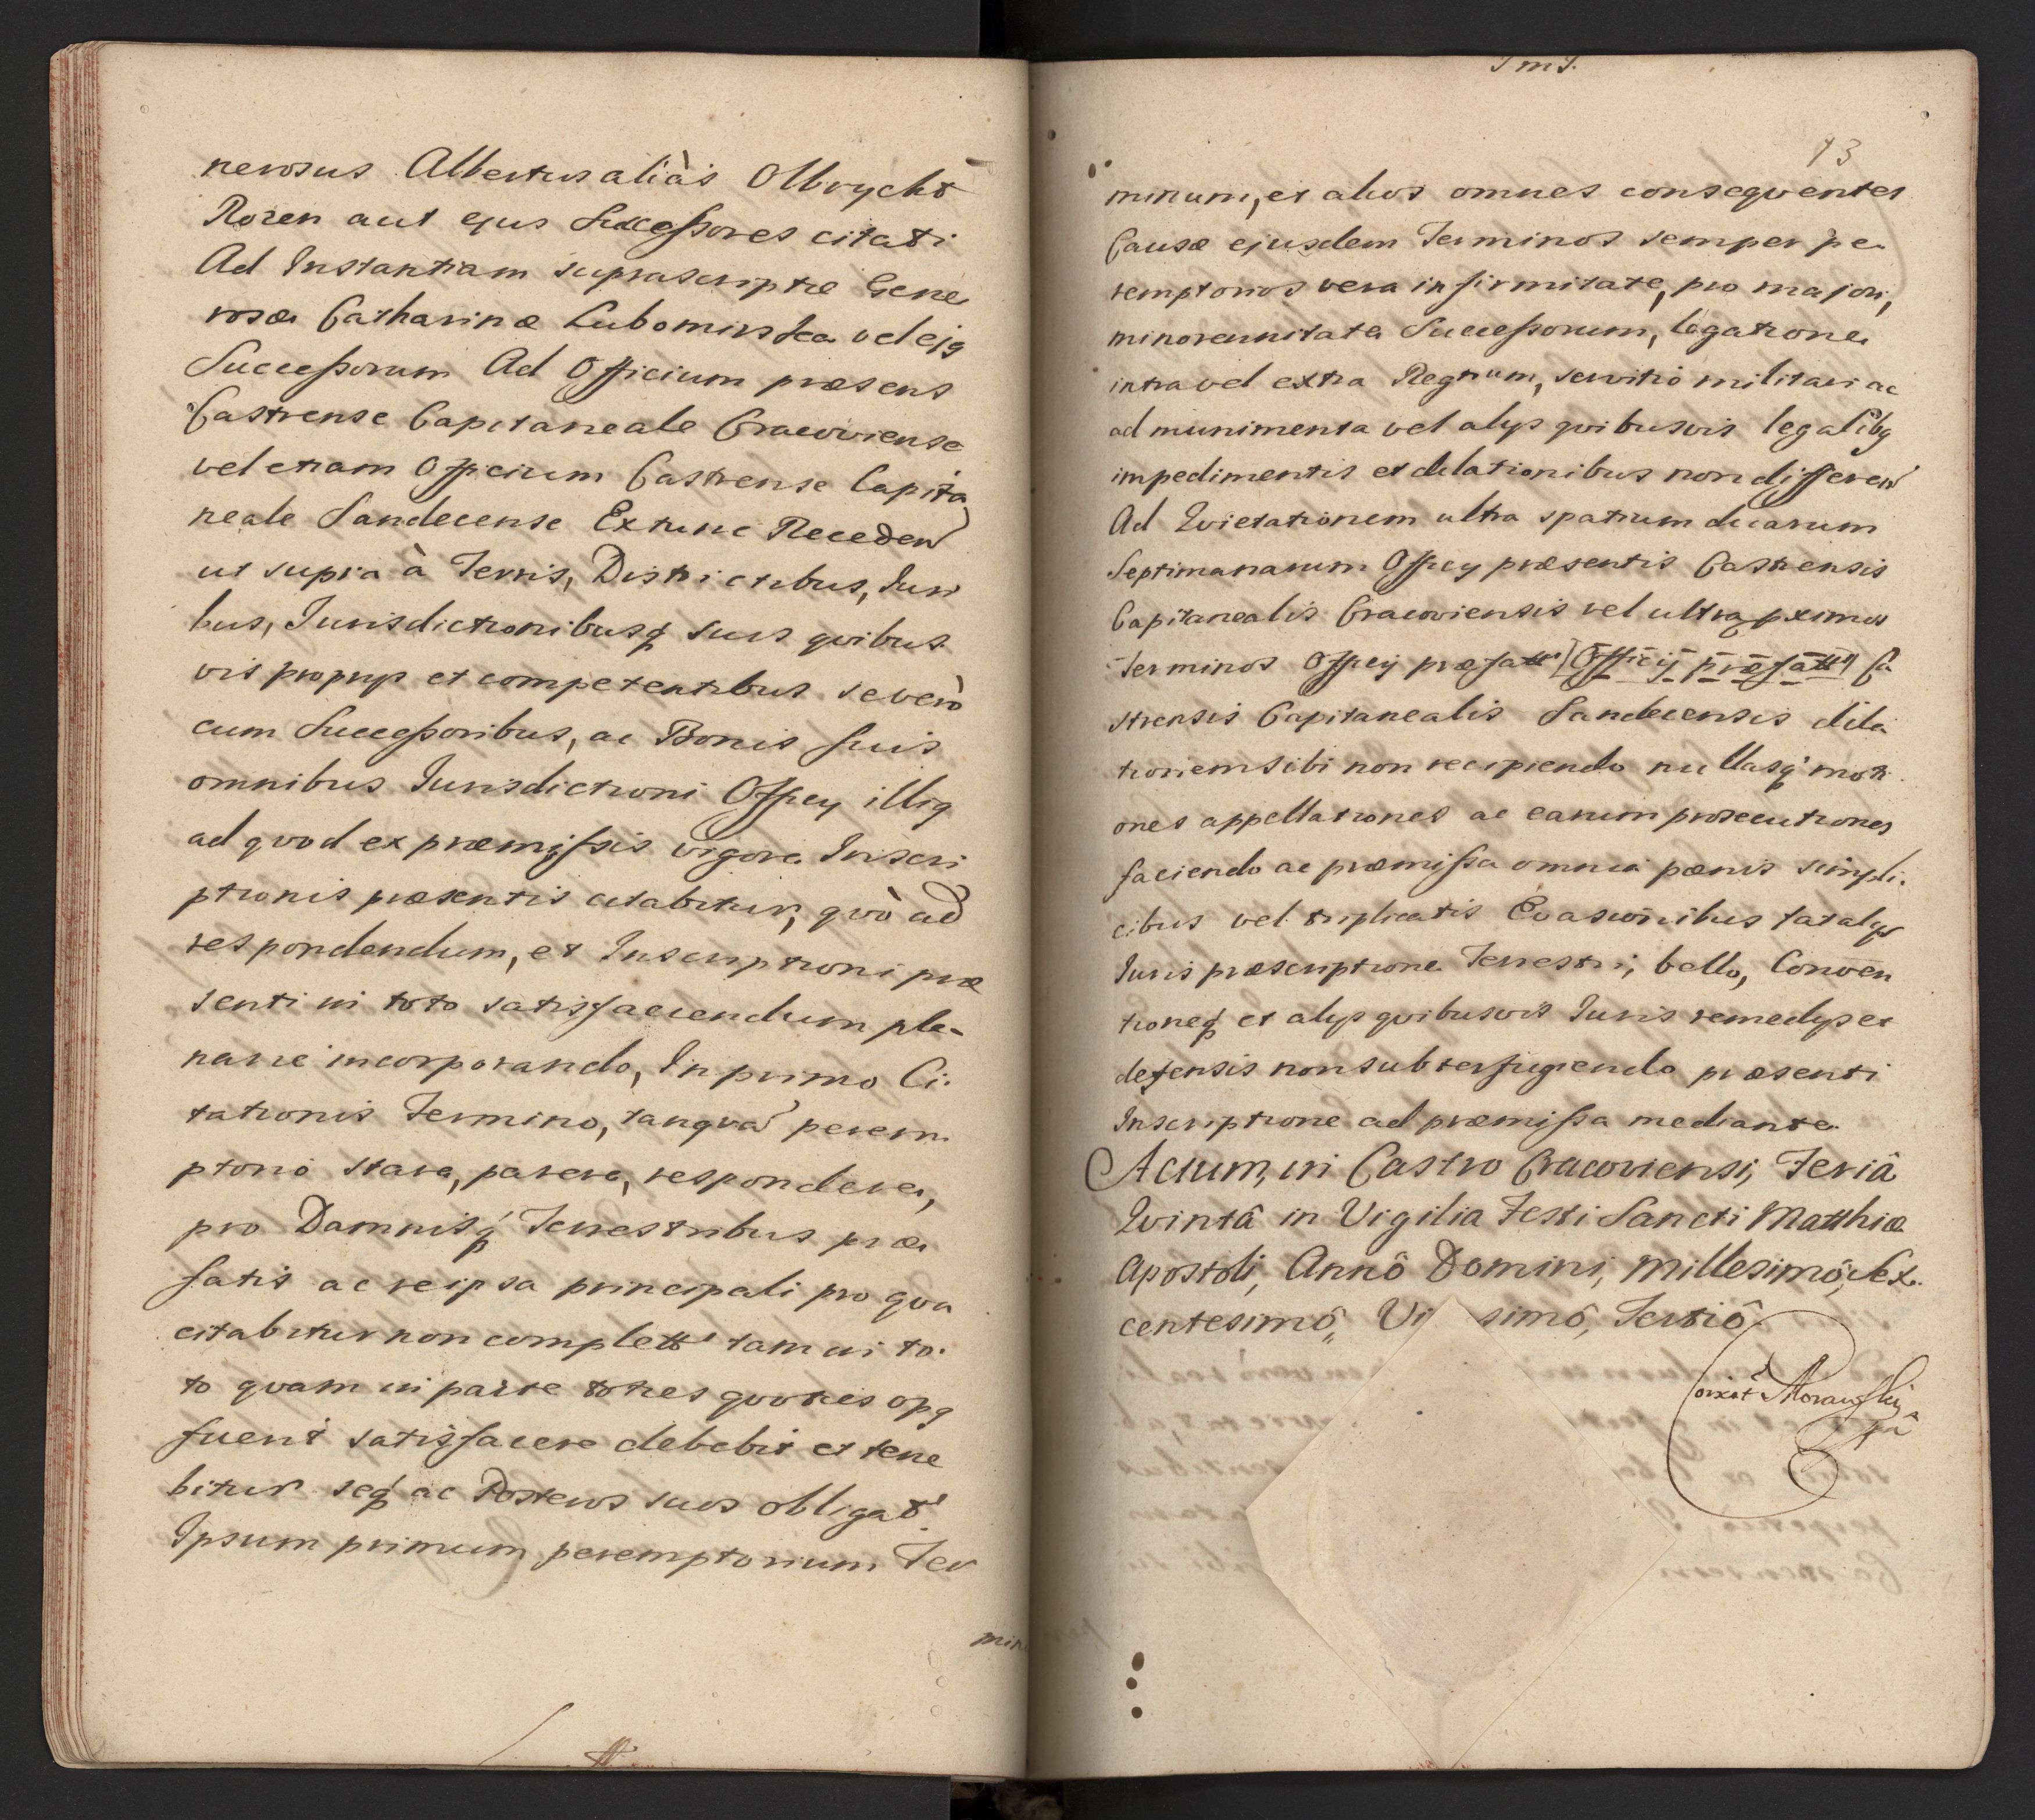 nerosus Albertus aliàs Olbrycht
Rozen aut ejus Successores citati
Ad Instantiam suprascriptæ Gene
rosæ Catharinæ Lubomirska vel ejq
Successorum Ad Officium præsens
Castrense Capitaneale Cracoviense
vel etiam Officium Castrense Capita
neale Sandecense Extunc Receden
ut supra à Terris, Districtibus, Juri
bus, Jurisdictionibusq suis quibus
vis proprijs et competentibus se verò
cum Successoribus, ac Bonis suis
omnibus Jurisdictioni Officy illiq
ad quod ex præmissis vigore Inscri
ptionis præsentis citabitur, quò ad
respondendum, et Inscriptioni præ
senti in toto satisfaciendum ple-
narie incorporando, In primo Ci.
tationis Termino, tanqua perem
ptorio stare, parere, respondere,
pro Damnisq Terrestribus præ
fatis ac reipsa principali pro qua
citabitur non complett tam in to.
to quam in parte toties quoties opq
fuerit satisfacere debebit et tene
bitur seq ac Posteros suos obligat
Ipsum primum peremptorium Ter
min
13
minum, et alios omnes consequentes
Causæ ejusdem Terminos semper pe
remptorios vera infirmitate, pro majori,
minorennitate Successorum, legatione
intra vel extra Regnum, servitio militari ac
ad munimenta vel alys quibusvis legalibq
impedimentis et dilationibus non differen
Ad Quietationem ultra spatium duarum
Septimanarum Officy præsentis Castrensis
Capitanealis Cracoviensis vel ultra pximos
Terminos Officy præfatt [Officij præfatt] Ca
strensis Capitanealis Sandecensis dila
tionem sibi non recipiendo nullasq moti
ones appellationes ac earum prosecutiones
faciendo ac præmissa omnia pænis simpli.
cibus vel triplicatis Evasionibus
Juris præscriptione Terrestri, bello, Conven
tioneq et alys quibusvis Juris remedys et
defensis non subterfugiendo præsenti
Inscriptione ad præmissa mediante
Actum, in Castro Cracoviensi, Feriâ
Quintâ in Vigilia Festi Sancti Matthiæ
Apostoli, Annô Domini, Millesimô, Sex.
centesimô, Vi simô, Tertiô
Morawski